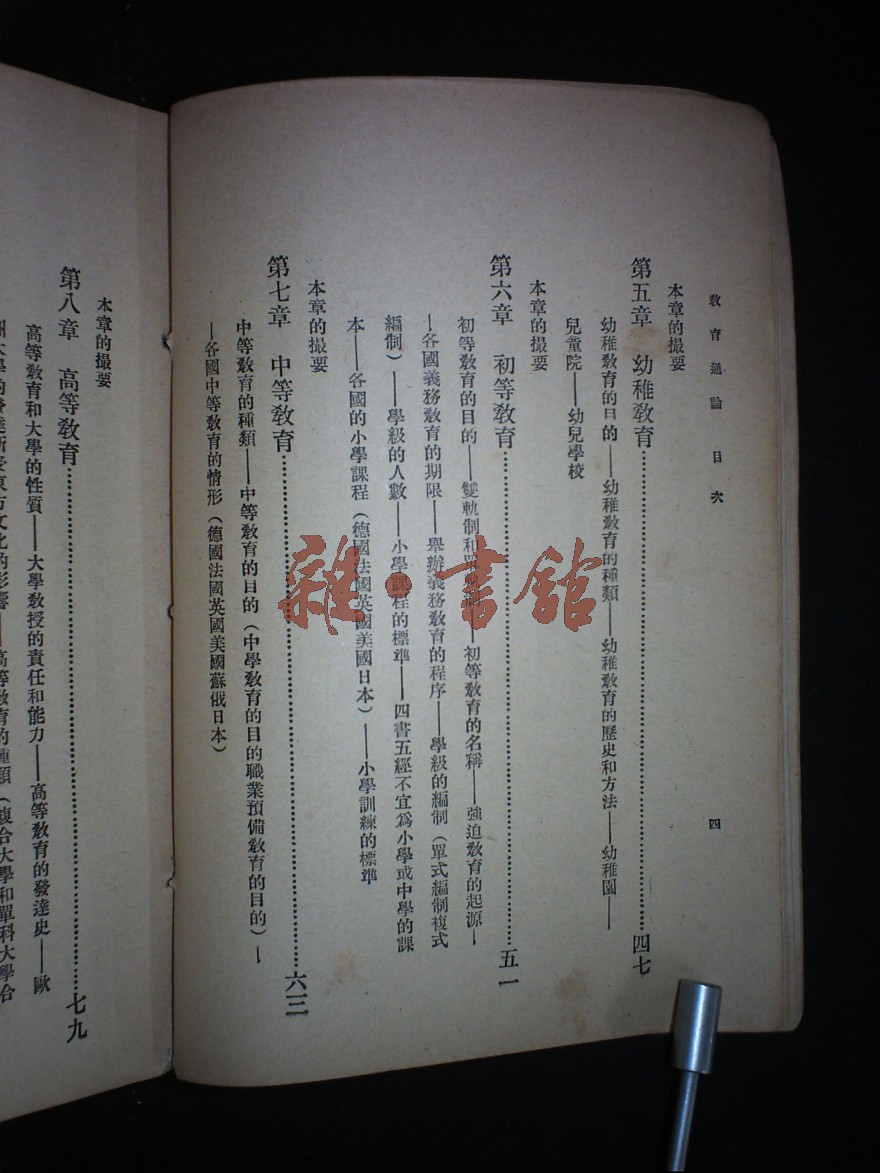 教育通論　目次
四
本章的撮要
第五章　幼稚教育……………四七
幼稚教育的目的——幼稚教育的種類——幼稚教育的歷史和方法——幼稚園——
兒童院——幼兒學校
本章的撮要
第六章　初等教育……………五一
初等教育的目的——雙軌制和——初等教育的名稱——強迫教育的起源—
—各國義務教育的期限——舉辦義務教育的程序——學級的編制（單式編制複式
編制）——學級的人數——小學課程的標準——四書五經不宜爲小學或中學的課
本——各國的小學課程（德國法國英國美國日本）——小學訓練的標準
本章的撮要
第七章　中等教育……………六三
中等教育的種類——中等教育的目的（中學教育的目的職業預備教育的目的）—
—各國中等教育的情形（德國法國英國美國蘇俄日本）
本章的撮要
第八章　高等教育……………七九
高等教育和大學的性質——大學教授的責任和能力——高等教育的發達史——歐
洲大學的發達漸受東方文化的影響——高等教育的種類（複合大學和單科大學合
雜·書館